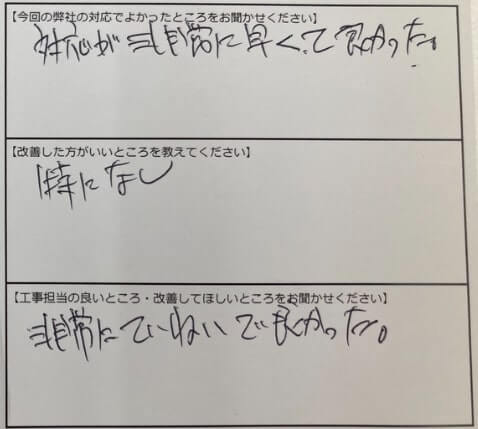 【今回の弊社の対応でよかったところをお聞かせください】
対応が非常に早くて良かった。
【改善した方がいいところを教えてください】
特になし
【工事担当の良いところ・改善してほしいところをお聞かせください】
非常にていねいで良かった。